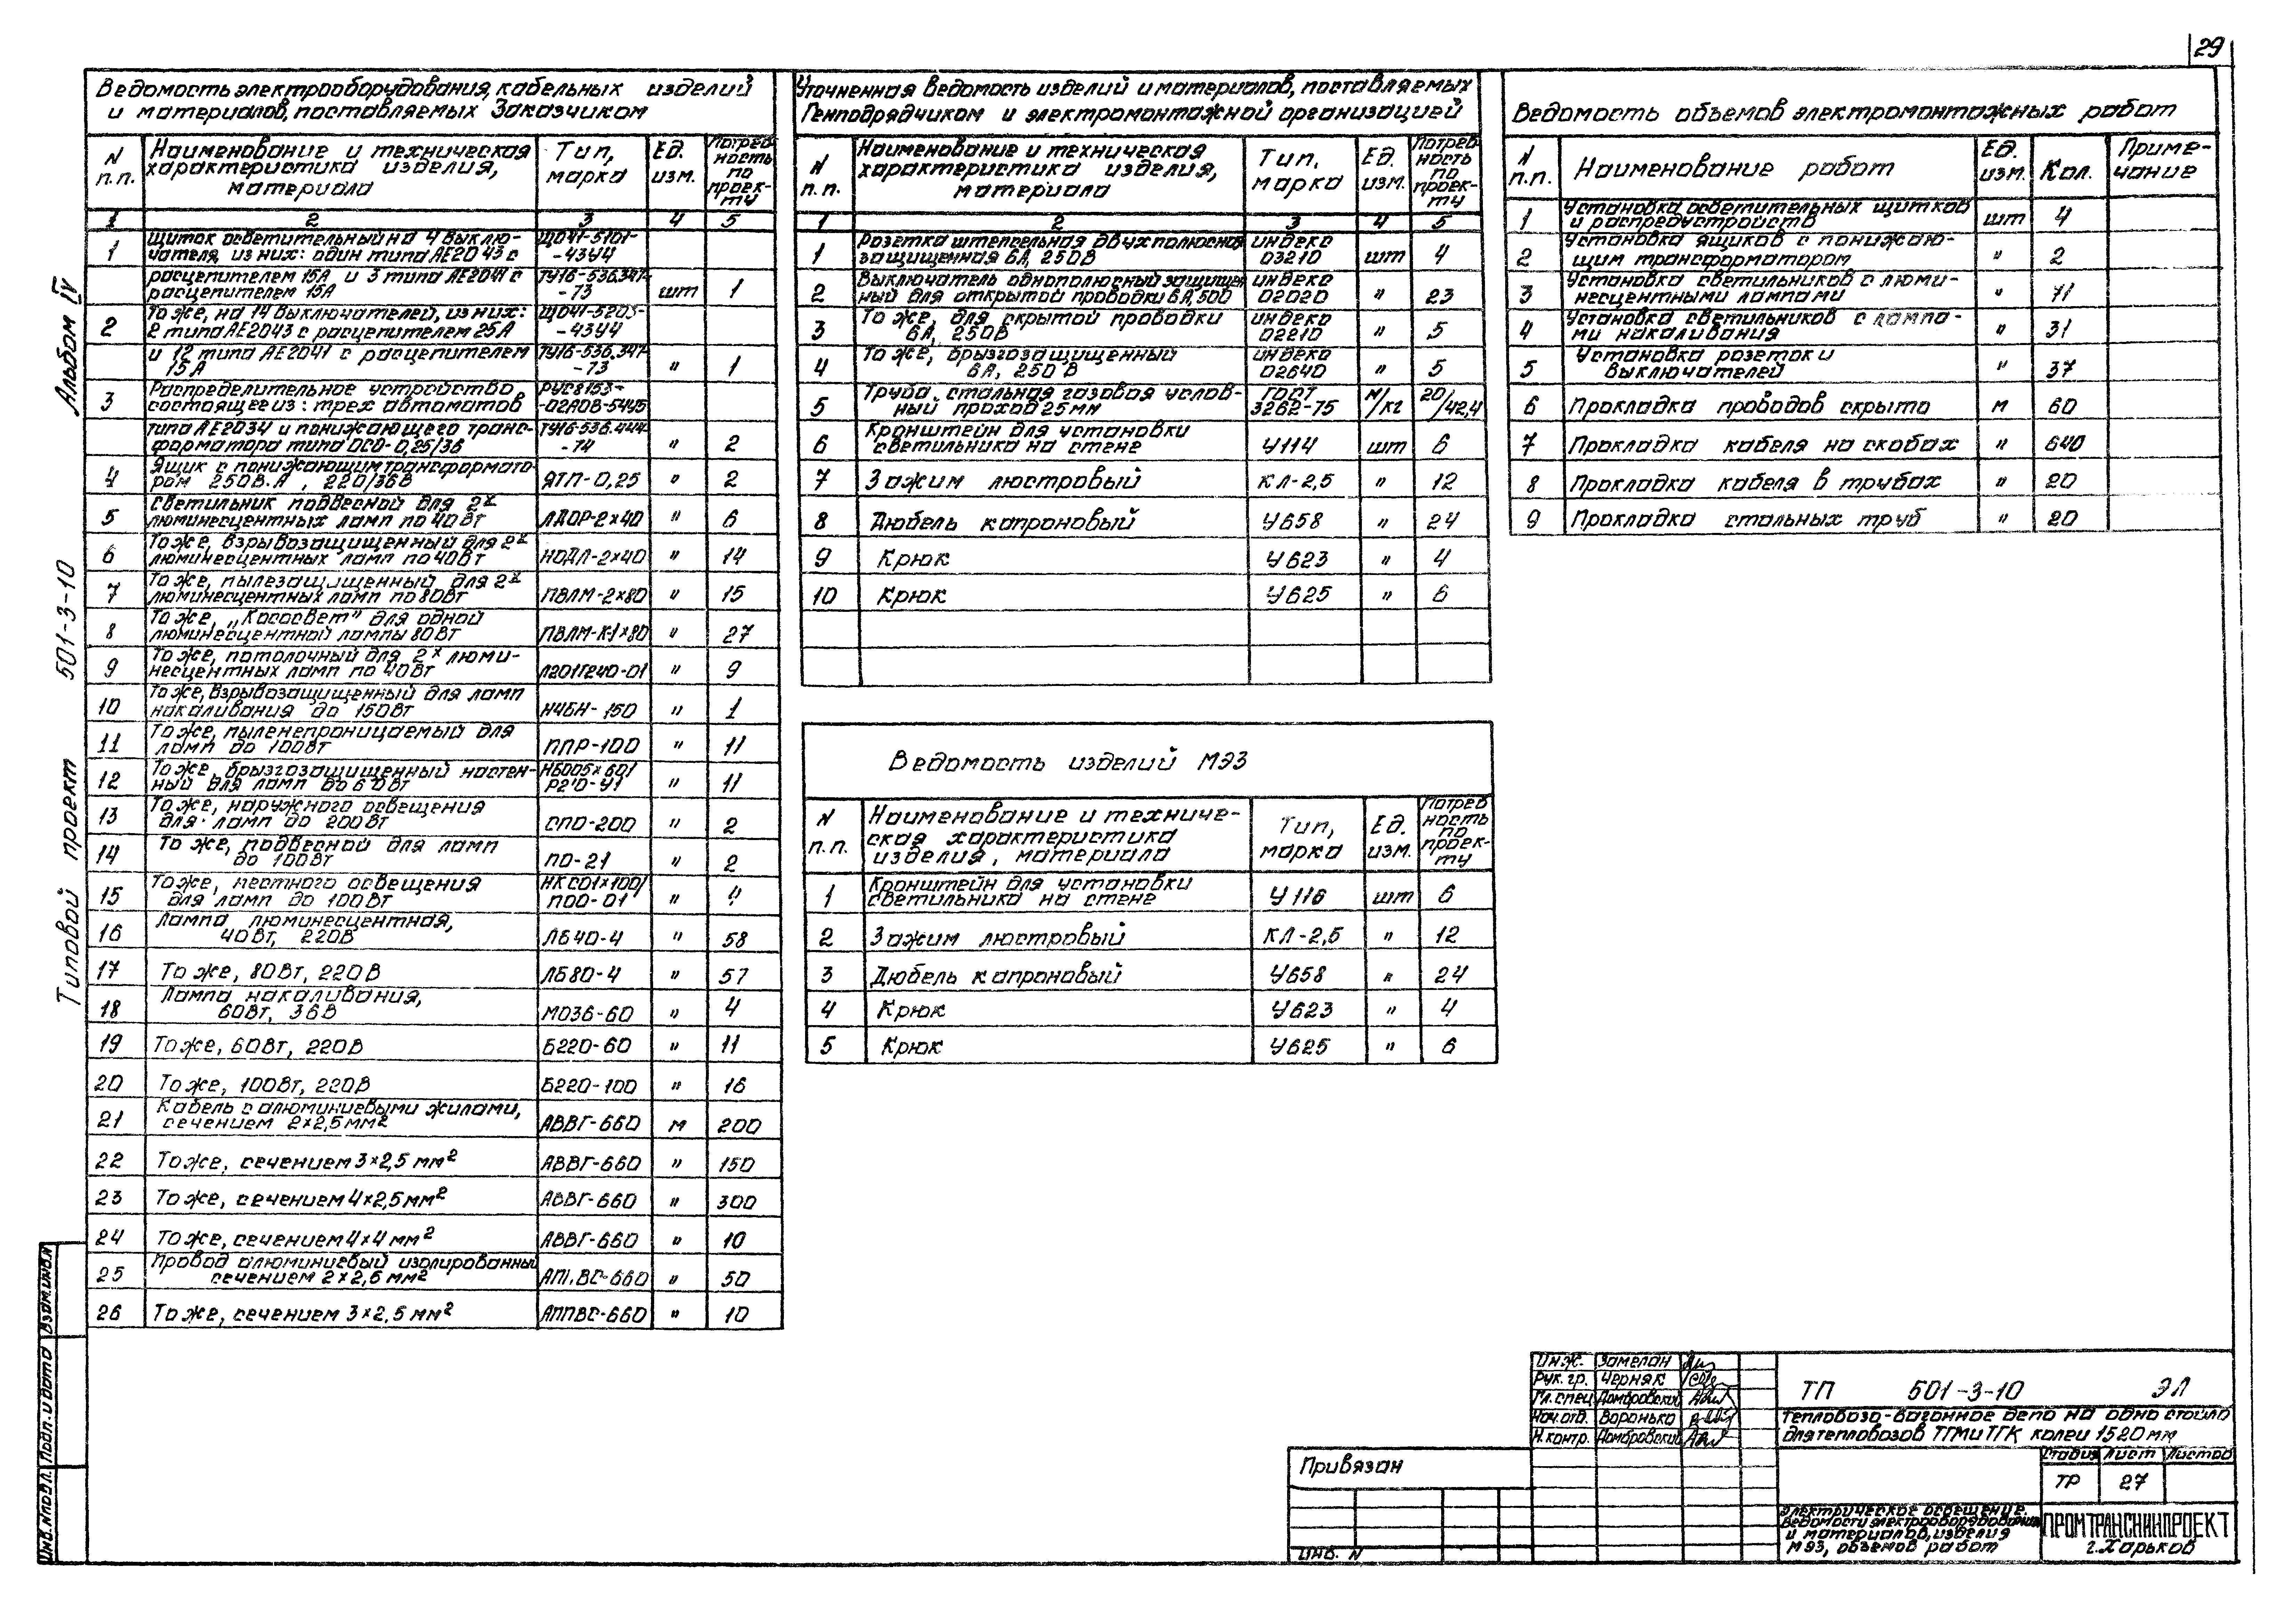 29
Ведомость электрооборудования, кабельных изделий
и материалов, поставляемых Заказчиком
N п.п. | Наименование и техническая характеристика изделия, материала | Тип, марка | Ед. изм. | Потребность по проекту
1 2 3 4 5
1 Щиток осветительный на 4 выклю-
чателя, из них: один типа АЕ2043 с
расцепителем 15А и 3 типа АЕ2041 с
расцепителем 15А ТУ16-536.347-73 шт 1
2 То же, на 14 выключателей, из них:
2 типа АЕ2043 с расцепителем 25А
и 12 типа АЕ2041 с расцепителем
15А ТУ16-536.347-73 " 1
3 Распределительное устройство,
состоящее из: трех автоматов
типа АЕ2034 и понижающего транс-
форматора типа ОСО-0,25/36 ТУ16-536.444-74 " 2
4 Ящик с понижающим трансформато-
ром 250В.А, 220/36В ЯТП-0,25 " 2
5 Светильник подвесной для 2х
люминесцентных ламп по 40Вт ЛДОР-2×40 " 6
6 То же, взрывозащищенный для 2х
люминесцентных ламп по 40Вт НОДЛ-2×40 " 14
7 То же, пылезащищенный для 2х
люминесцентных ламп по 80Вт ПВЛМ-2×80 " 15
8 То же, „Кососвет" для одной
люминесцентной лампы 80Вт ПВЛМ-К-1×80 " 27
9 То же, потолочный для 2х люми-
несцентных ламп по 40Вт " 9
10 То же, взрывозащищенный для ламп
накаливания до 150Вт Н4БН-150 " 1
11 То же, пыленепроницаемый для
ламп до 100Вт ППР-100 " 11
12 То же, брызгозащищенный настен-
ный для ламп до 60Вт НБ005×60/ " 11
13 То же, наружного освещения
для ламп до 200Вт СПО-200 " 2
14 То же, подвесной для ламп
до 100Вт ПО-21 " 2
15 То же, местного освещения
для ламп до 100Вт НКС01×100/П00-01 "
16 Лампа люминесцентная,
40Вт, 220В ЛБ40-4 " 58
17 То же, 80Вт, 220В ЛБ80-4 " 57
18 Лампа накаливания,
60Вт, 36В МО36-60 " 4
19 То же, 60Вт, 220В Б220-60 " 11
20 То же, 100Вт, 220В Б220-100 " 16
21 Кабель с алюминиевыми жилами,
сечением 2×2,5мм² АВВГ-660 м 200
22 То же, сечением 3×2,5 мм² АВВГ-660 " 150
23 То же, сечением 4×2,5мм² АВВГ-660 " 300
24 То же, сечением 4×4 мм² АВВГ-660 " 10
25 Провод алюминиевый изолированный
сечением 2×2,5мм² " 50
26 То же, сечением 3×2,5 мм² АППВС-660 " 10
Уточненная ведомость изделий и материалов, поставляемых
Генподрядчиком и электромонтажной организацией
N п.п. | Наименование и техническая характеристика изделия, материала | Тип, марка | Ед. изм. | Потребность по проекту
1 2 3 4 5
1 Розетка штепсельная двухполюсная
защищенная 6А, 250В индекс 03210 шт 4
2 Выключатель однополюсный защищен-
ный для открытой проводки 6А, индекс 02020 " 23
3 То же, для скрытой проводки
6А, 250В индекс 02210 " 5
4 То же, брызгозащищенный
6А, 250В индекс 02640 " 5
5 Труба стальная газовая услов-
ный проход 25мм ГОСТ 3262-75 м/кг 20/42,4
6 Кронштейн для установки
светильника на стене У114 шт 6
7 Зажим люстровый КЛ-2,5 " 12
8 Дюбель капроновый У658 " 24
9 Крюк У623 " 4
10 Крюк У625 " 6
Ведомость изделий МЭЗ
N п.п. | Наименование и техническая характеристика изделия, материала | Тип, марка | Ед. изм. | Потребность по проекту
1 Кронштейн для установки
светильника на стене У116 шт 6
2 Зажим люстровый КЛ-2,5 " 12
3 Дюбель капроновый У658 " 24
4 Крюк У623 " 4
5 Крюк У625 " 6
Ведомость объемов электромонтажных работ
N п.п. | Наименование работ | Ед. изм. | Кол. | Примечание
1 Установка осветительных щитков
и распредустройств шт 4
2 Установка ящиков с понижаю-
щим трансформатором " 2
3 Установка светильников с люми-
несцентными лампами " 71
4 Установка светильников с лампа-
ми накаливания " 31
5 Установка розеток и
выключателей " 37
6 Прокладка проводов скрыто м 60
7 Прокладка кабеля на скобах " 640
8 Прокладка кабеля в трубах " 20
9 Прокладка стальных труб " 20
Типовой проект 501-3-10 Альбом IV
Инв.Nподл. Подп. и дата Взам.инв.N
Инж. Замелан
Рук. гр. Черняк
Гл. спец. Домбровский
Нач. отд. Воронько
Н. контр. Домбровский
Привязан
Инв. N
ТП 501-3-10 ЭЛ
Тепловозо-вагонное депо на одно стойло
для тепловозов ТГМ и ТГК колеи 1520мм
Стадия Лист Листов
ТР 27
Электрическое освещение.
Ведомости электрооборудования
и материалов, изделия
МЭЗ, объемов работ
ПРОМТРАНСНИИПРОЕКТ
г. Харьков